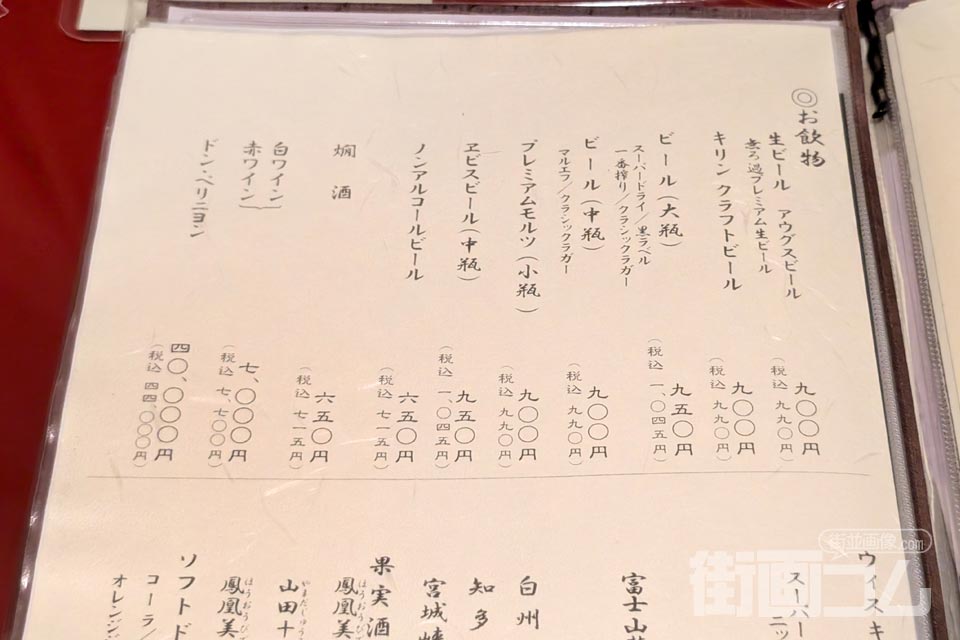 ◎お飲物
生ビール アウグスビール
無ろ過プレミアム生ビール
九〇〇円
(税込 九九〇円)
キリン クラフトビール
九〇〇円
(税込 九九〇円)
ビール(大瓶)
スーパードライ/黒ラベル
一番搾り/クラシックラガー
九五〇円
(税込 一、〇四五円)
ビール(中瓶)
マルエフ/クラシックラガー
九〇〇円
(税込 九九〇円)
プレミアムモルツ(小瓶)
九〇〇円
(税込 九九〇円)
ヱビスビール(中瓶)
九五〇円
(税込 一、〇四五円)
ノンアルコールビール
六五〇円
(税込 七一五円)
燗酒
六五〇円
(税込 七一五円)
白ワイン
赤ワイン
七、〇〇〇円
(税込 七、七〇〇円)
ドン・ペリニヨン
四〇、〇〇〇円
(税込 四四、〇〇〇円)
ウィスキ
スーパー
富士山
白州
知多
宮城峡
果実酒
鳳凰美
山田十
鳳凰美
ソフトド
コーラ/
オレンジ
街並画像.com
街画コム